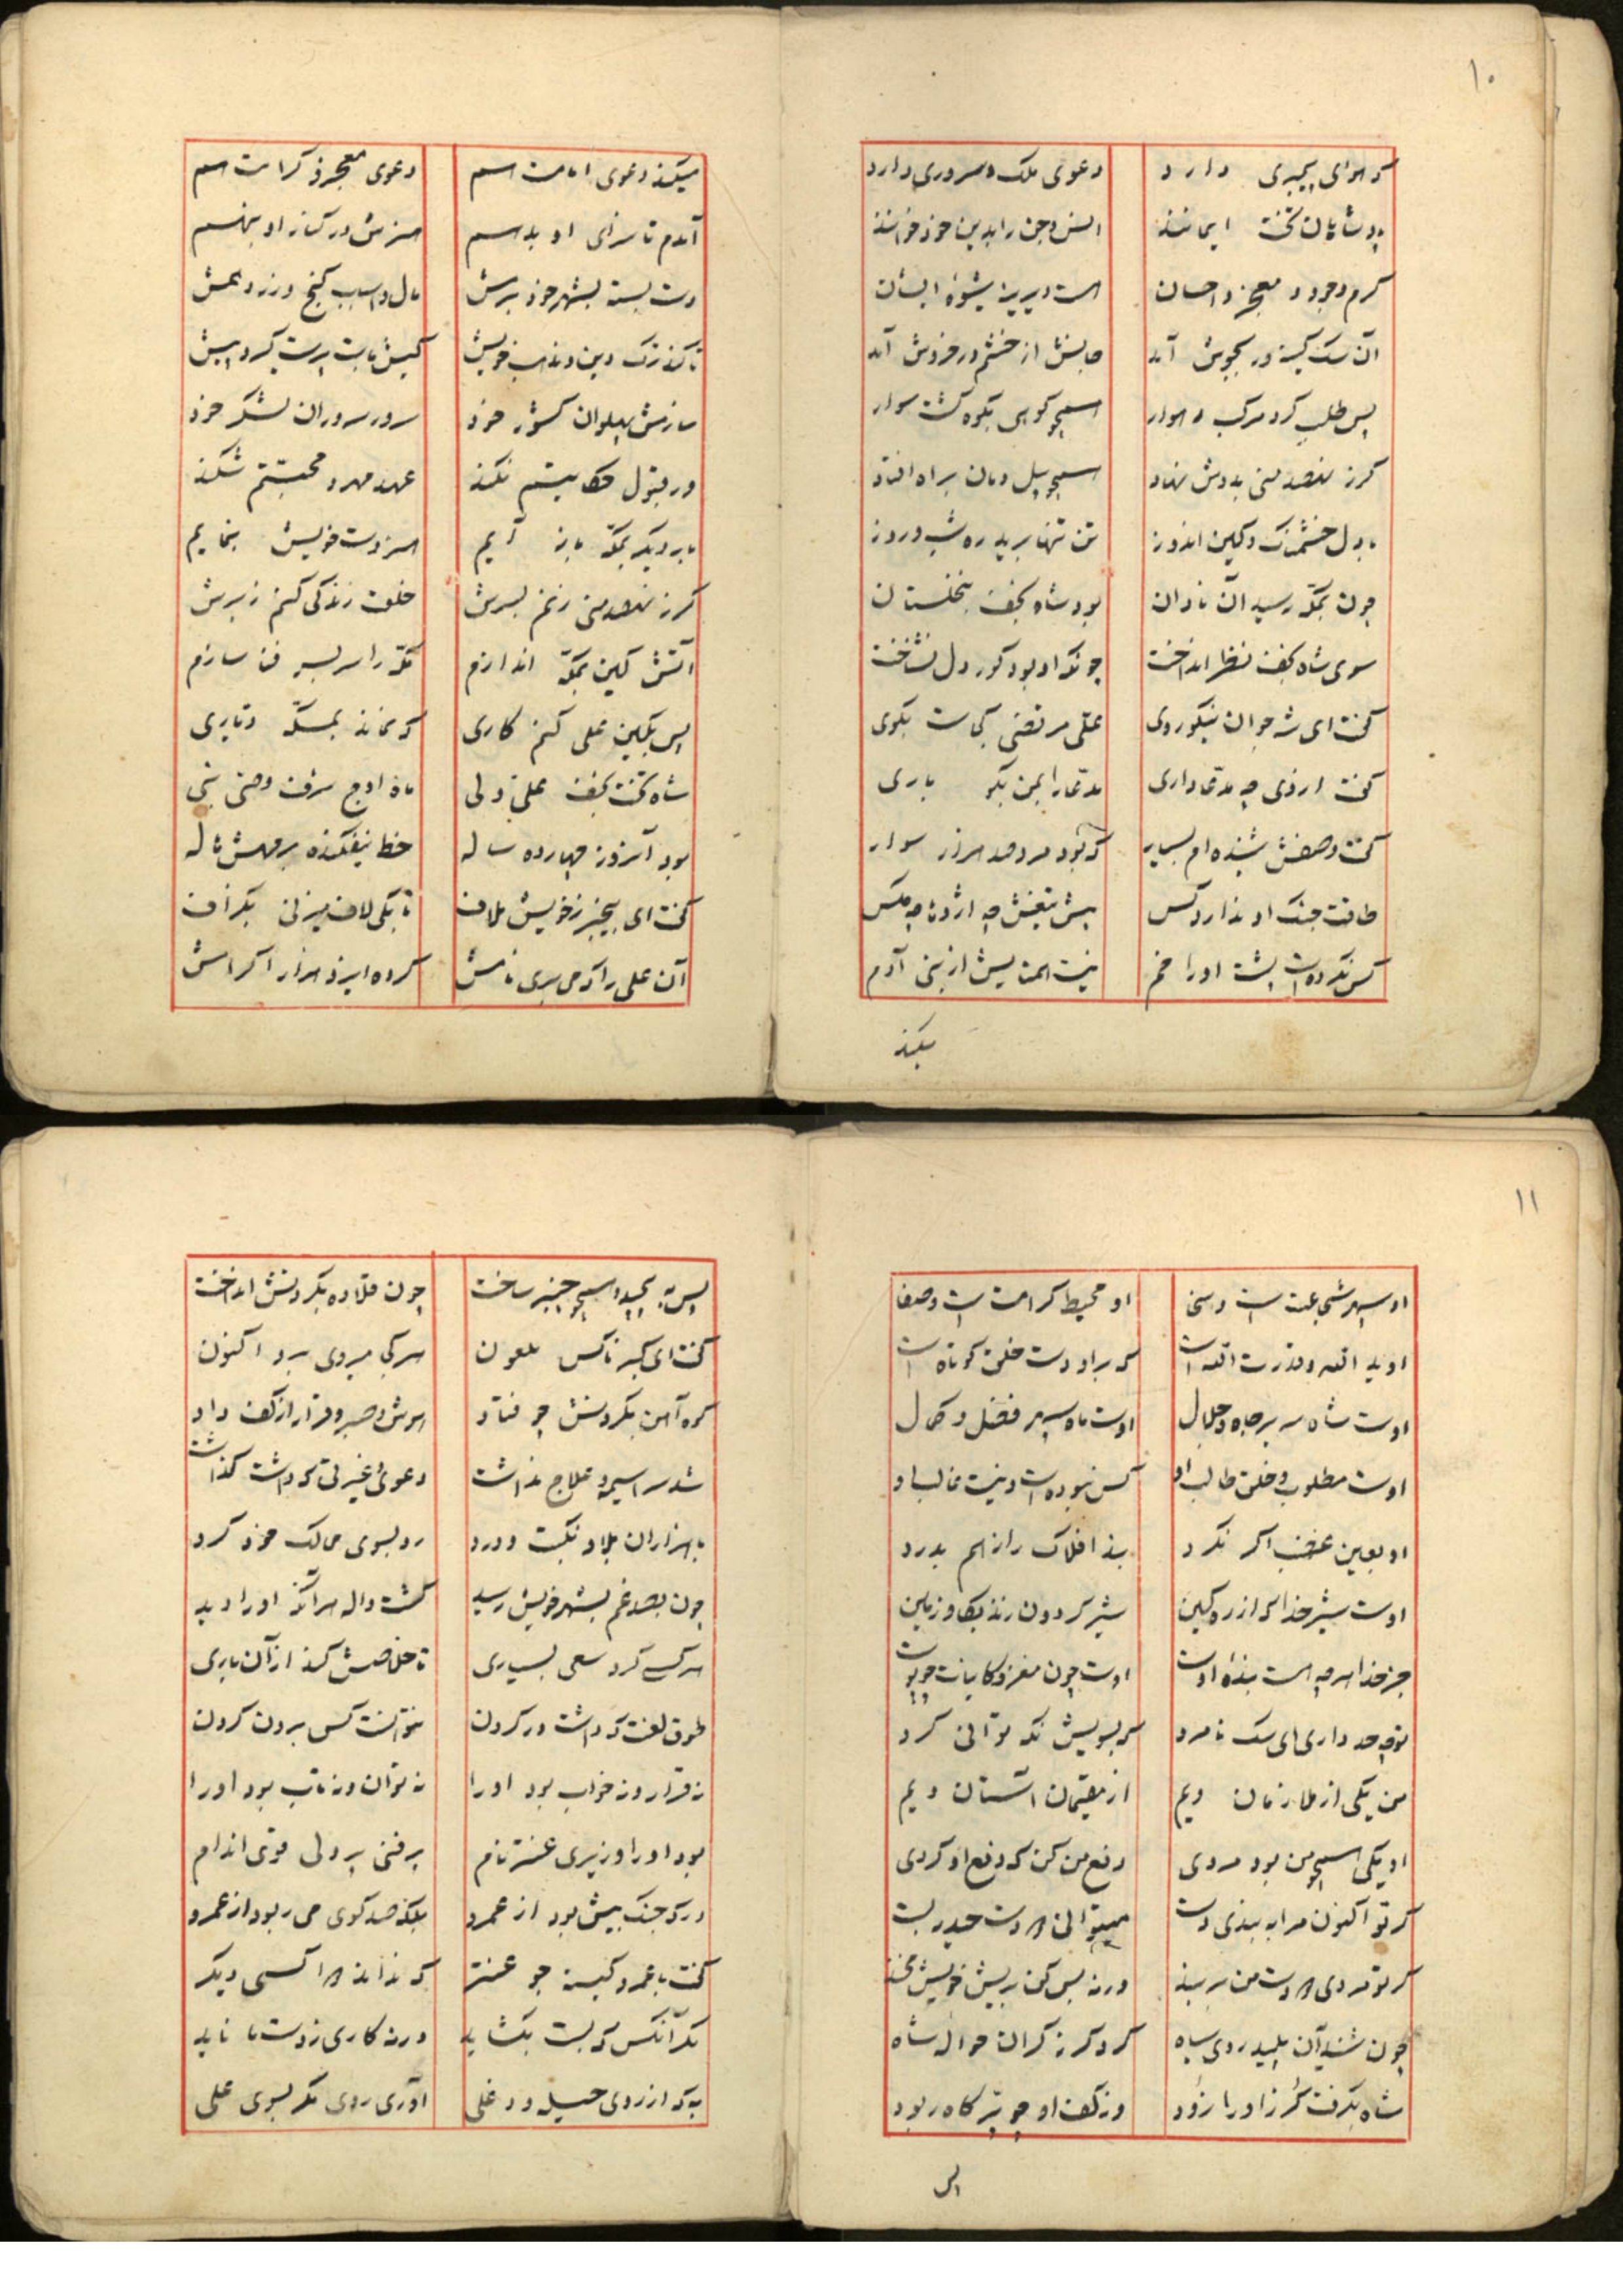 ۱۰
که هوای پیمبری دارد دعوی ملک و سروری دارد
پادشاهان تخت ایمانند انس و جن را بدین خود خوانند
کرم و جود و معجز و احسان هست دیرینه شیوهٔ ایشان
آن سک کینه ور بجوش آمد جانش از خشم در خروش آمد
پس طلب کرد مرکب رهوار همچو کوهی بکوه کشت سوار
کرز نهصد منی بدوش نهاد همچو پیل دمان براه افتاد
با دل خشمناک و کین اندوز تن تنها برید ره شب و روز
چون بمکّه رسید آن نادان بود شاه نجف بنخلستان
سوی شاه نجف نظر انداخت چونکه او بود کور دل نشناخت
کفت ای شه جوان نیکوروی علی مرتضی کجاست بکوی
کفت از وی چه مدّعا داری مدّعا را بمن بکو باری
کفت وصفش شنیده ام بسیار که بود مرد صد هزار سوار
طاقت جنک او ندارد کس پیش تیغش چه اژدها چه مکس
کس نکرده است پشت او را خم نیست همتایش از بنی آدم
میکند
میکند دعوی امامت هم دعوی معجز و کرامت هم
آمدم تا سزای او بدهم سرزنش در کنار او بنهم
دست بسته بشهر خود برمش مال و اسباب کنج و زر دهمش
تا کند ترک دین و مذهب خویش کیش ما بت پرست کیرد پیش
سازمش پهلوان کشور خود سرور سروران لشکر خود
ور قبول حکایتم نکند عهد مهر و محبتم شکند
بار دیکر بمکّه باز آیم هنر دست خویش بنمایم
کرز نهصد منی زنم بسرش خلعت زندکی کنم ز برش
آتش کین بمکّه اندازم مکّه را سر بسر فنا سازم
پس بکین علی کنم کاری که نماند بمکّه دیّاری
شاه تخت نجف علیّ ولی ماه اوج شرف وصیّ نبی
بود آنروز چهارده ساله خط نیفکنده بر مهش هاله
کفت ای بیخبر ز خویش ملاف تا بکی لاف میزنی بکزاف
آن علی را که می بری نامش کرده ایزد هزار اکرامش
۱۱
او سپهر شجاعت است و سخی او محیط کرامت است و صفا
او ید الله و قدرت الله است که بر او دست خلق کوتاه است
اوست شاه سریر جاه و جلال اوست ماه سپهر فضل و کمال
اوست مطلوب و خلق طالب او کس نبوده است و نیست غالب او
او بعین غضب اکر نکرد بند افلاک را ز هم بدرد
اوست شیر خدا که از ره کین شیر کردون زند بکاو زمین
جز خدا هر چه هست بندهٔ اوست اوست چون مغز و کاینات چو پوست
تو چه حد داری ای سک نامرد که بسویش نکه توانی کرد
من یکی از ملازمان ویم از مقیمان آستان ویم
او یکی همچو من بود مردی دفع من کن که دفع او کردی
کر تو اکنون مرا به بندی دست میتوانی دست حیدر بست
کر تو مردی دست من بر بند ورنه بس کن بریش خویش بخند
چون شنید آن پلید روی سیاه کرد کرز کران حواله شاه
شاه بکرفت کرز او را زود وز کف او چو پرّ کاه ربود
پس
پس به پیچید و همچو چنبر ساخت چون قلاده بکردنش انداخت
کفت ای کبر ناکس ملعون هر کجا میروی برو اکنون
کره آهن بکردنش چو فتاد هوش و صبر و قرار از کف داد
شد سراسیمه و علاج نداشت دعوئ غیرتی که داشت کذاشت
با هزاران بلا و نکبت و درد رو بسوی ممالک خود کرد
چون بصد غم بشهر خویش رسید کشت واله هر آنکه او را دید
هر کسی کرد سعی بسیاری تا خلاصش کند از آن باری
طوق لعنت که داشت در کردن نتوانست کس برون کردن
نه قرار و نه خواب بود او را نه توان و نه تاب بود او را
بود او را وزیری عنتر نام پر فنی پر دلی قوی اندام
در که جنک بیش بود از عمرو بلکه صد کوی می ربود از عمرو
کفت با عمرو کینه جو عنتر که نداند کسی دیکر
مکر آنکس که بست بکشاید ورنه کاری ز دست ما ناید
به که از روی حیله و دغلی آوری روی مکر بسوی علی